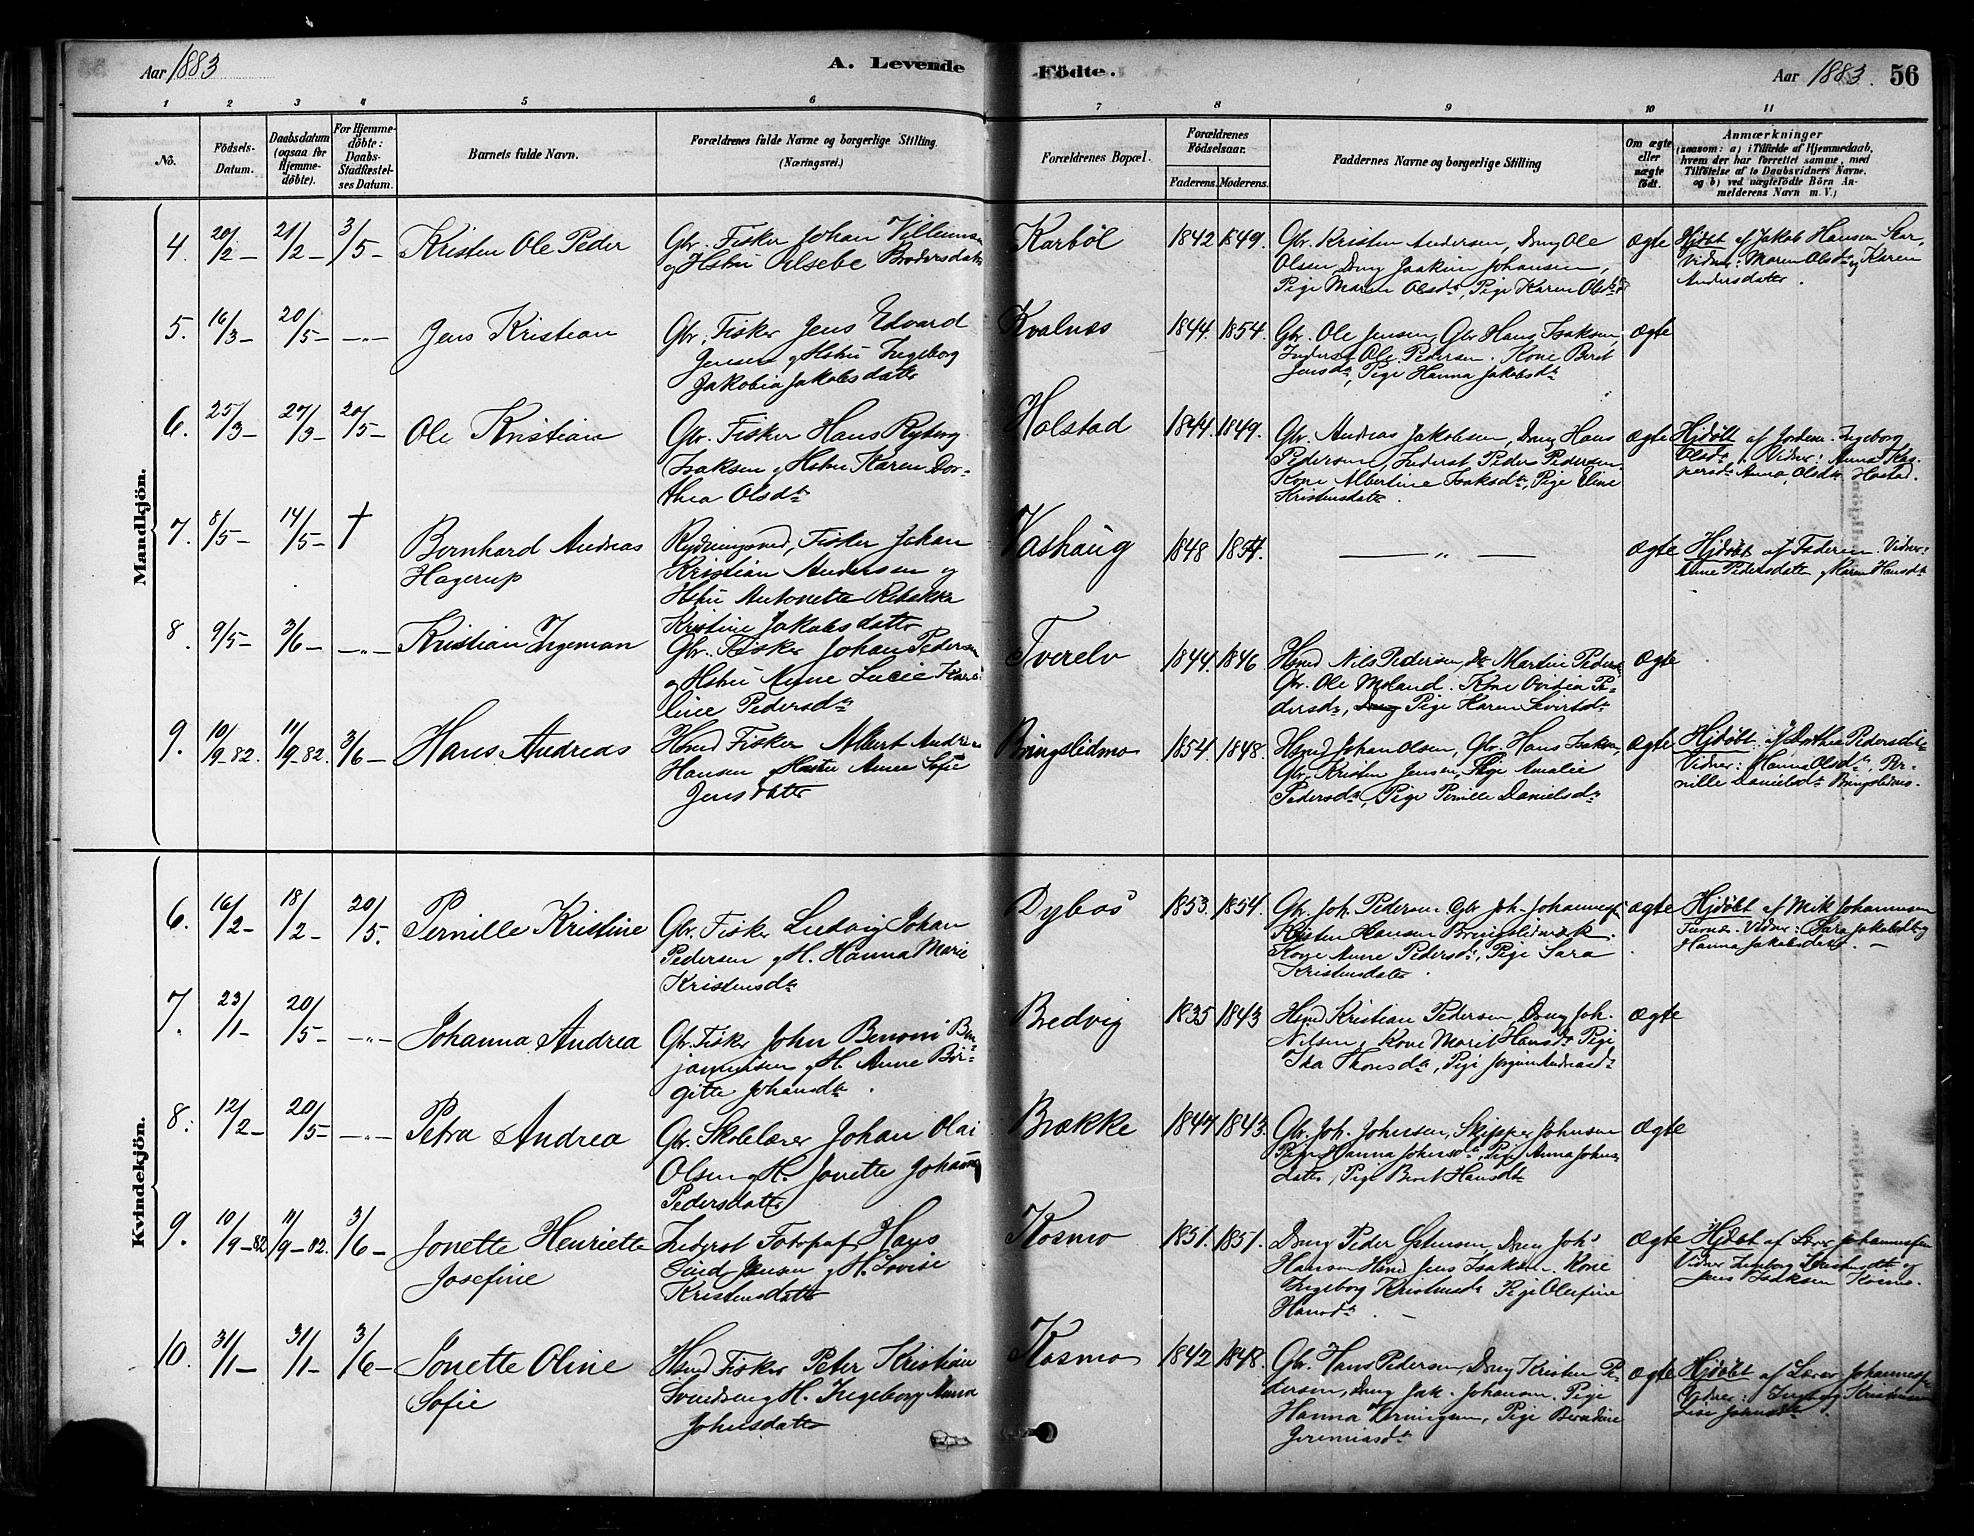 Aar 1883 A. Levende Födte. Aar 1883. 56
1 2 3 4 5 6 7 8 9 10 11
No.
Födsels-
Datum.
Daabsdatum
(ogsaa for
Hjemme-
döbte).
For Hjemme-
döbte:
Daabs-
Stadfæstel-
ses Datum.
Barnets fulde Navn.
Forældrenes fulde Navne og borgerlige Stilling
(Næringsvei.)
Forældrenes Bopæl.
Forældrenes
Födselsaar.
Faderens. Moderens.
Faddernes Navne og borgerlige Stilling
Om ægte
eller
uægte
födt.
Anmærkninger
(saasom: a) i Tilfælde af Hjemmedaab,
hvem der har forrettet samme, med
Tilföielse af to Daabsvidners Navne,
og b) ved uægtefödte Börn An-
melderens Navn m. V.)
Mandkjön.
4. 20/2 21/2 3/5 Kristen Ole Peder
Gbr. Fisker Johan Villumsen
og Hstru Elsebe Brodersdatter
Karböl 1842 1849.
Gbr. Kristen Andersen, Dreng Ole
Olsen, Dreng Joakim Johansen,
Pige Maren Olsdtr, Pige Karen Olsdtr
Ægte
Hjdöbt af Jakob Hansen Skar,
Vidner: Maren Olsdtr og Karen
Andersdatter.
5. 16/3 20/5 —"— Jens Kristian
Gbr. Fisker Jens Edvard
Jensen og Hstru Ingeborg
Jakobia Jakobsdatter
Kvalnæs 1844. 1854.
Gbr. Ole Jensen, Gbr Hans Isaksen,
Inderst Ole Pedersen. Kone Berit
Jensdtr, Pige Hanna Jakobsdtr
Ægte
6. 25/3 27/3 20/5 Ole Kristian
Gbr. Fisker Hans Ryberg
Isaksen og Hstru Karen Dor-
thea Olsdtr
Holstad 1844. 1849.
Gbr. Andreas Jakobsen, Dreng Hans
Pedersen, Inderst Peder Pedersen
Kone Albertine Isaksdtr, Pige Eline
Kristensdatter.
Ægte
Hjdöbt af Jordem. Ingeborg
Olsdtr. Vidner: Anna Kas-
persdtr Anna Olsdtr Hostad.
7. 8/5 14/5 † Bernhard Andreas
Hagerup
Rydningsmd, Fisker Johan
Kristian Andersen og
Hstru Antonette Rebekka
Kristine Jakobsdatter
Vashaug 1848 1854.
— " —
Ægte
Hjdöbt af Faderen. Vidner:
Anne Pedersdatter og Karen Hansdtr
8. 9/5 3/6 —"— Kristian Ingeman
Gbr. Fisker Johan Pedersen
og Hstru Anne Lucie Kare-
line Pedersdtr
Tverelv 1844. 1846
Hsmd Nils Pedersen, Do Martin Peders
Gbr. Ole Moland. Kone Ovidia Pe-
dersdtr, Pige Karen Sivertsdtr
Ægte
9. 10/9 82. 11/9 82. 3/6 Hans Andreas
Hsmd Fisker Albert Andreas
Hansen Hstru Anna Sofie
Jensdatter
Bringslidmo 1854. 1848.
Hsmd Johan Olsen, Gbr. Hans Isaksen,
Gbr. Kristen Jensen, Pige Amalie
Pedersdtr, Pige Pernille Danielsdtr
Ægte
Hjdöbt af Dorthea Pedersdtr
Vidner: Hanna Olsdtr, Per-
nille Danielsdtr Bringslidmo.
Kvindekjön.
6. 16/2 18/2 20/5. Pernille Kristine
Gbr. Fisker Ludvig Johan
Pedersen og H. Hanna Marie
Kristensdtr
Dybos 1853. 1854.
Gbr. Joh. Pedersen. Gbr Joh. Johannesen
Kristen Hansen Bringslidmark.
Kone Anne Pedersdtr, Pige Sara
Kristensdatter.
Ægte
Hjdöbt af Mik Johannesen
Vidner: Sara Jakobsdtr og
Hanna Jakobsdatter. —
7. 23/1 20/5 —"— Johanna Andrea
Gbr. Fisker John Benoni Ben-
jaminsen og H. Anne Bir-
gitte Johansdtr.
Bredvig 1835 1843
Hsmd Kristian Pedersen, Dreng Joh.
Nilsen, Kone Marit Hansdtr Pige
Ida Thorsdtr, Pige Jörgine Andreasdtr
Ægte
8. 12/2 20/5 —"— Petra Andrea
Gbr. Skolelærer Johan Olai
Olsen og H. Jonette Johanna
Pedersdatter
Brække 1844 1843.
Gbr. Joh. Johnsen, Skipper Johnsen
Pige Hanna Johnsdtr, Pige Anna Johns-
datter, Pige Berit Hansdtr
Ægte
9. 10/9 82 11/9 82. 3/6 Jonette Henriette
Josefine
Inderst Fotograf Hans
Jensen og H. Lovise
Kristensdatter
Kosmo 1851. 1851.
Dreng Peder Dreng Joh.
Hansen Hsmd Jens Isaksen. Kone
Ingeborg Kristensdtr Pige Olufine
Hansdtr —
Ægte
Hjdöbt af Lærer Johannessen
Vidner Ingeborg Kristensdtr og
Jens Isaksen Kosmo.
10. 31/1 31/1 3/6 Jonette Oline
Sofie
Hsmd Fisker Peter Kristian
Svendsen og H. Ingeborg Anna
Johnsdatter
Kosmo 1842 1848.
Gbr. Hans Pedersen, Dreng Kristen Pe-
dersen, Dreng Jak. Johansen. Pige
Hanna Henningsen, Pige Beradine
Jeremiasdtr
Ægte
Hjdöbt af Lærer Johannesse
Vidner: Kristensen
Lise Johnsdtr.